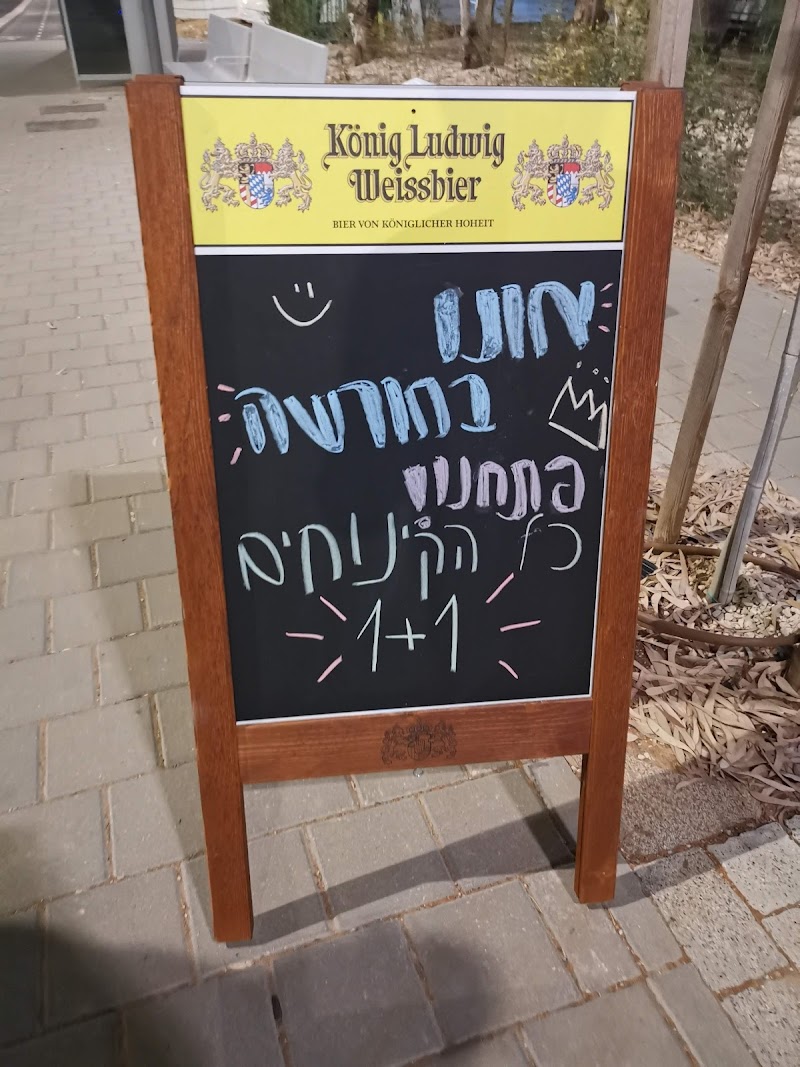 König Ludwig
Weissbier
BIER VON KÖNIGLICHER HOHEIT
אונו
בחורשה
פתחנו!
כל הקינוחים
1+1